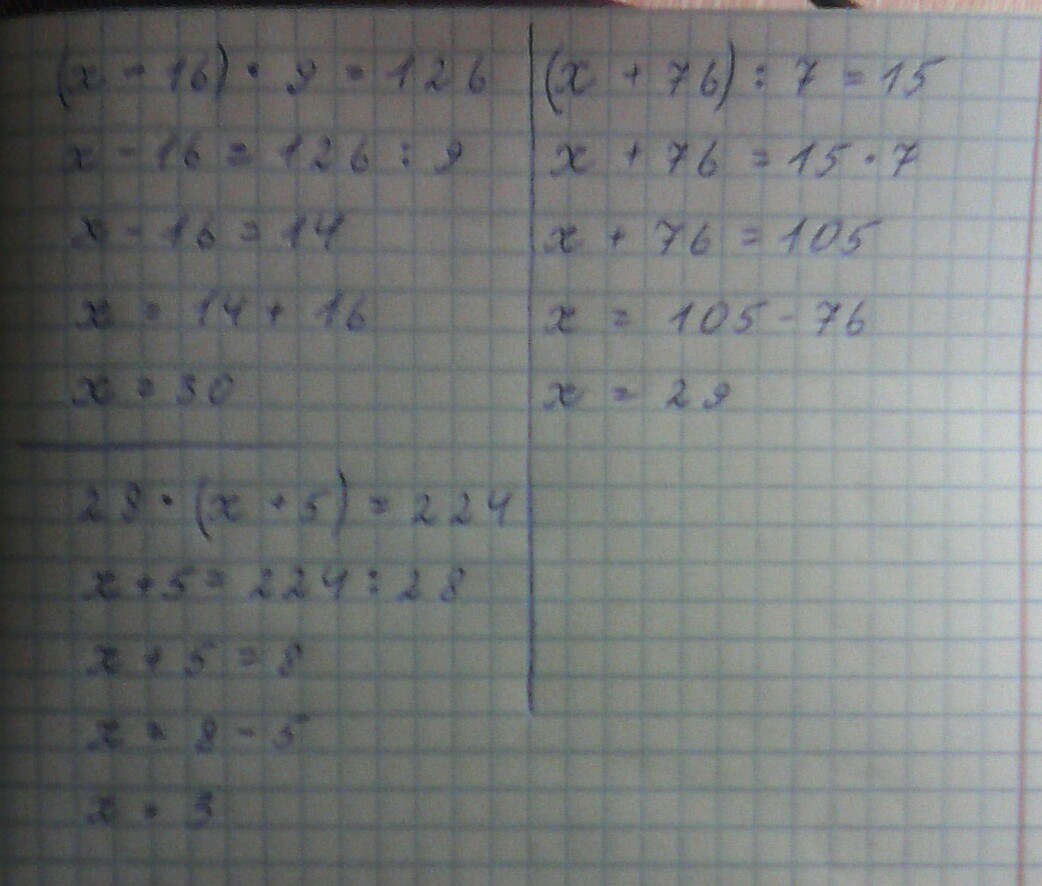 (x - 16) · 9 = 126
x - 16 = 126 : 9
x - 16 = 14
x = 14 + 16
x = 30
(x + 76) : 7 = 15
x + 76 = 15 · 7
x + 76 = 105
x = 105 - 76
x = 29
28 · (x + 5) = 224
x + 5 = 224 : 28
x + 5 = 8
x = 8 - 5
x = 3